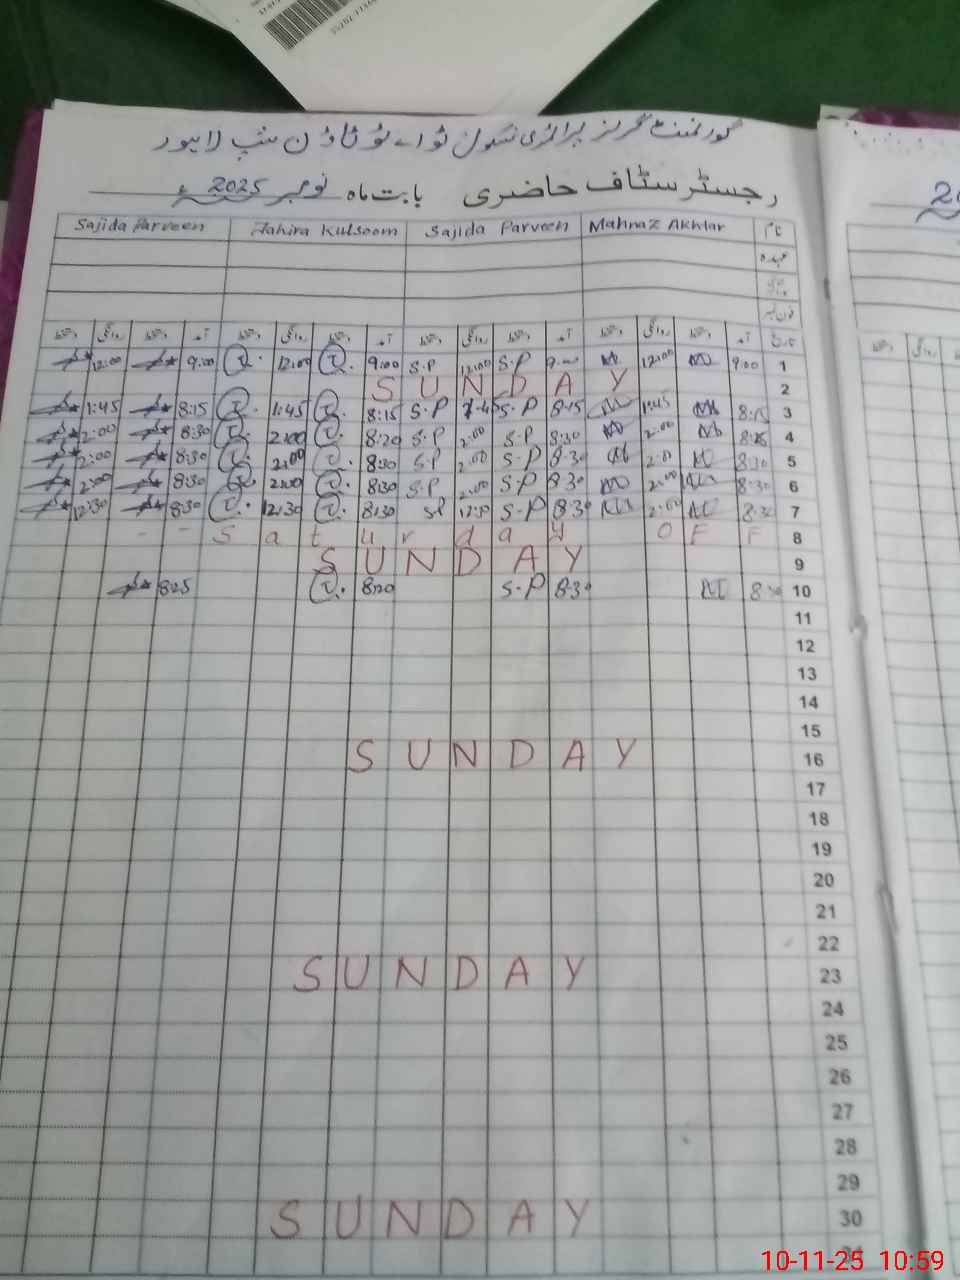 گورنمنٹ گرلز پرائمری سکول ٹو اے ٹو ٹاؤن شپ لاہور
رجسٹر سٹاف حاضری بابت ماہ نومبر 2025ء
Sajida Parveen Tahira Kulsoom Sajida Parveen Mahnaz Akhtar نام
عہدہ
12:00 9:00 12:00 9:00 S.P 12:00 S.P 9:00 12:00 9:00 1
SUNDAY 2
1:45 8:15 1:45 8:15 S.P S.P 8:15 1:45 8:15 3
2:00 8:30 2:00 8:20 S.P 2:00 S.P 8:30 2:00 4
2:00 8:30 2:00 8:30 S.P 2:00 S.P 8:30 2:00 8:30 5
2:00 8:30 2:00 8:30 S.P 2:00 S.P 8:30 2:00 8:30 6
12:30 8:30 12:30 8:30 S.P 12:30 S.P 8:30 2:00 8:30 7
Saturday OFF 8
SUNDAY 9
8:25 8:20 S.P 8:30 10
11
12
13
14
15
SUNDAY 16
17
18
19
20
21
22
SUNDAY 23
24
25
26
27
28
29
SUNDAY 30
31
10-11-25 10:59